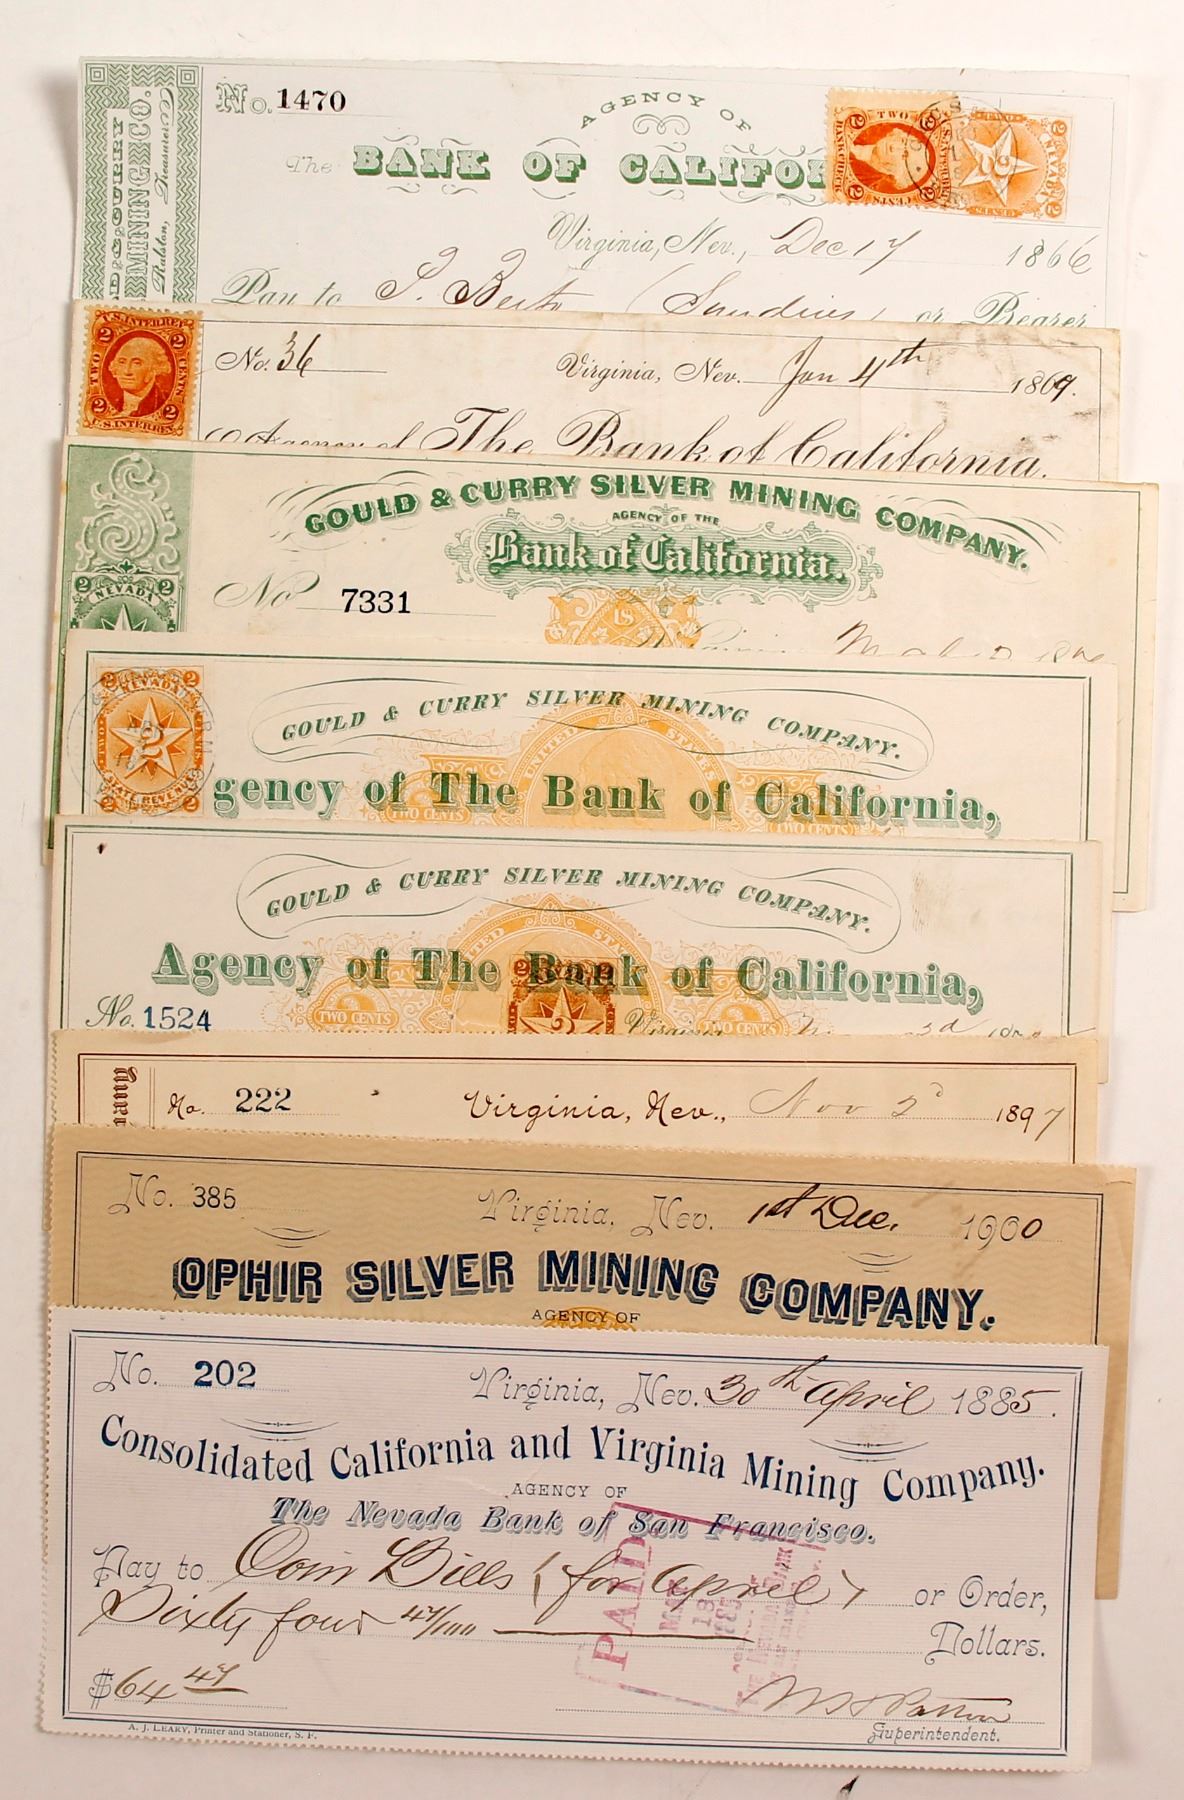 No. 1470
AGENCY OF
The BANK OF CALIFOR
D & CURRY
MINING CO.
Ralston, Treasurer
TWO
2 2
CENTS
TWO
NEVADA
2
Virginia, Nev., Dec 17 1866
Pay to or Bearer
U.S. INTER. REV.
2 2
TWO CENTS
2 2
U.S. INTER. REV.
No. 36 Virginia, Nev. Jan 4th 1869.
Agency of The Bank of California.
GOULD & CURRY SILVER MINING COMPANY.
AGENCY OF THE
Bank of California.
2 2
NEVADA
No 7331
US
2 NEVADA 2
TWO CENTS
2
STATE REVENUE
2 2
GOULD & CURRY SILVER MINING COMPANY.
UNITED STATES
gency of The Bank of California,
TWO CENTS TWO CENTS
GOULD & CURRY SILVER MINING COMPANY.
UNITED STATES
Agency of The Bank of California,
2 2
2
No. 1524
TWO CENTS TWO CENTS
No. 222 Virginia, Nev., Nov 2d 1897
No. 385 Virginia, Nev. 1st Dec. 1900
OPHIR SILVER MINING COMPANY.
AGENCY OF
No. 202 Virginia, Nev. 30th April 1885.
Consolidated California and Virginia Mining Company.
AGENCY OF
The Nevada Bank of San Francisco.
Pay to Coin Bills (for April) or Order,
Sixty four 47/100 Dollars.
PAID
MAY
18
$64 47
W H Patton
Superintendent.
A. J. LEARY, Printer and Stationer, S. F.